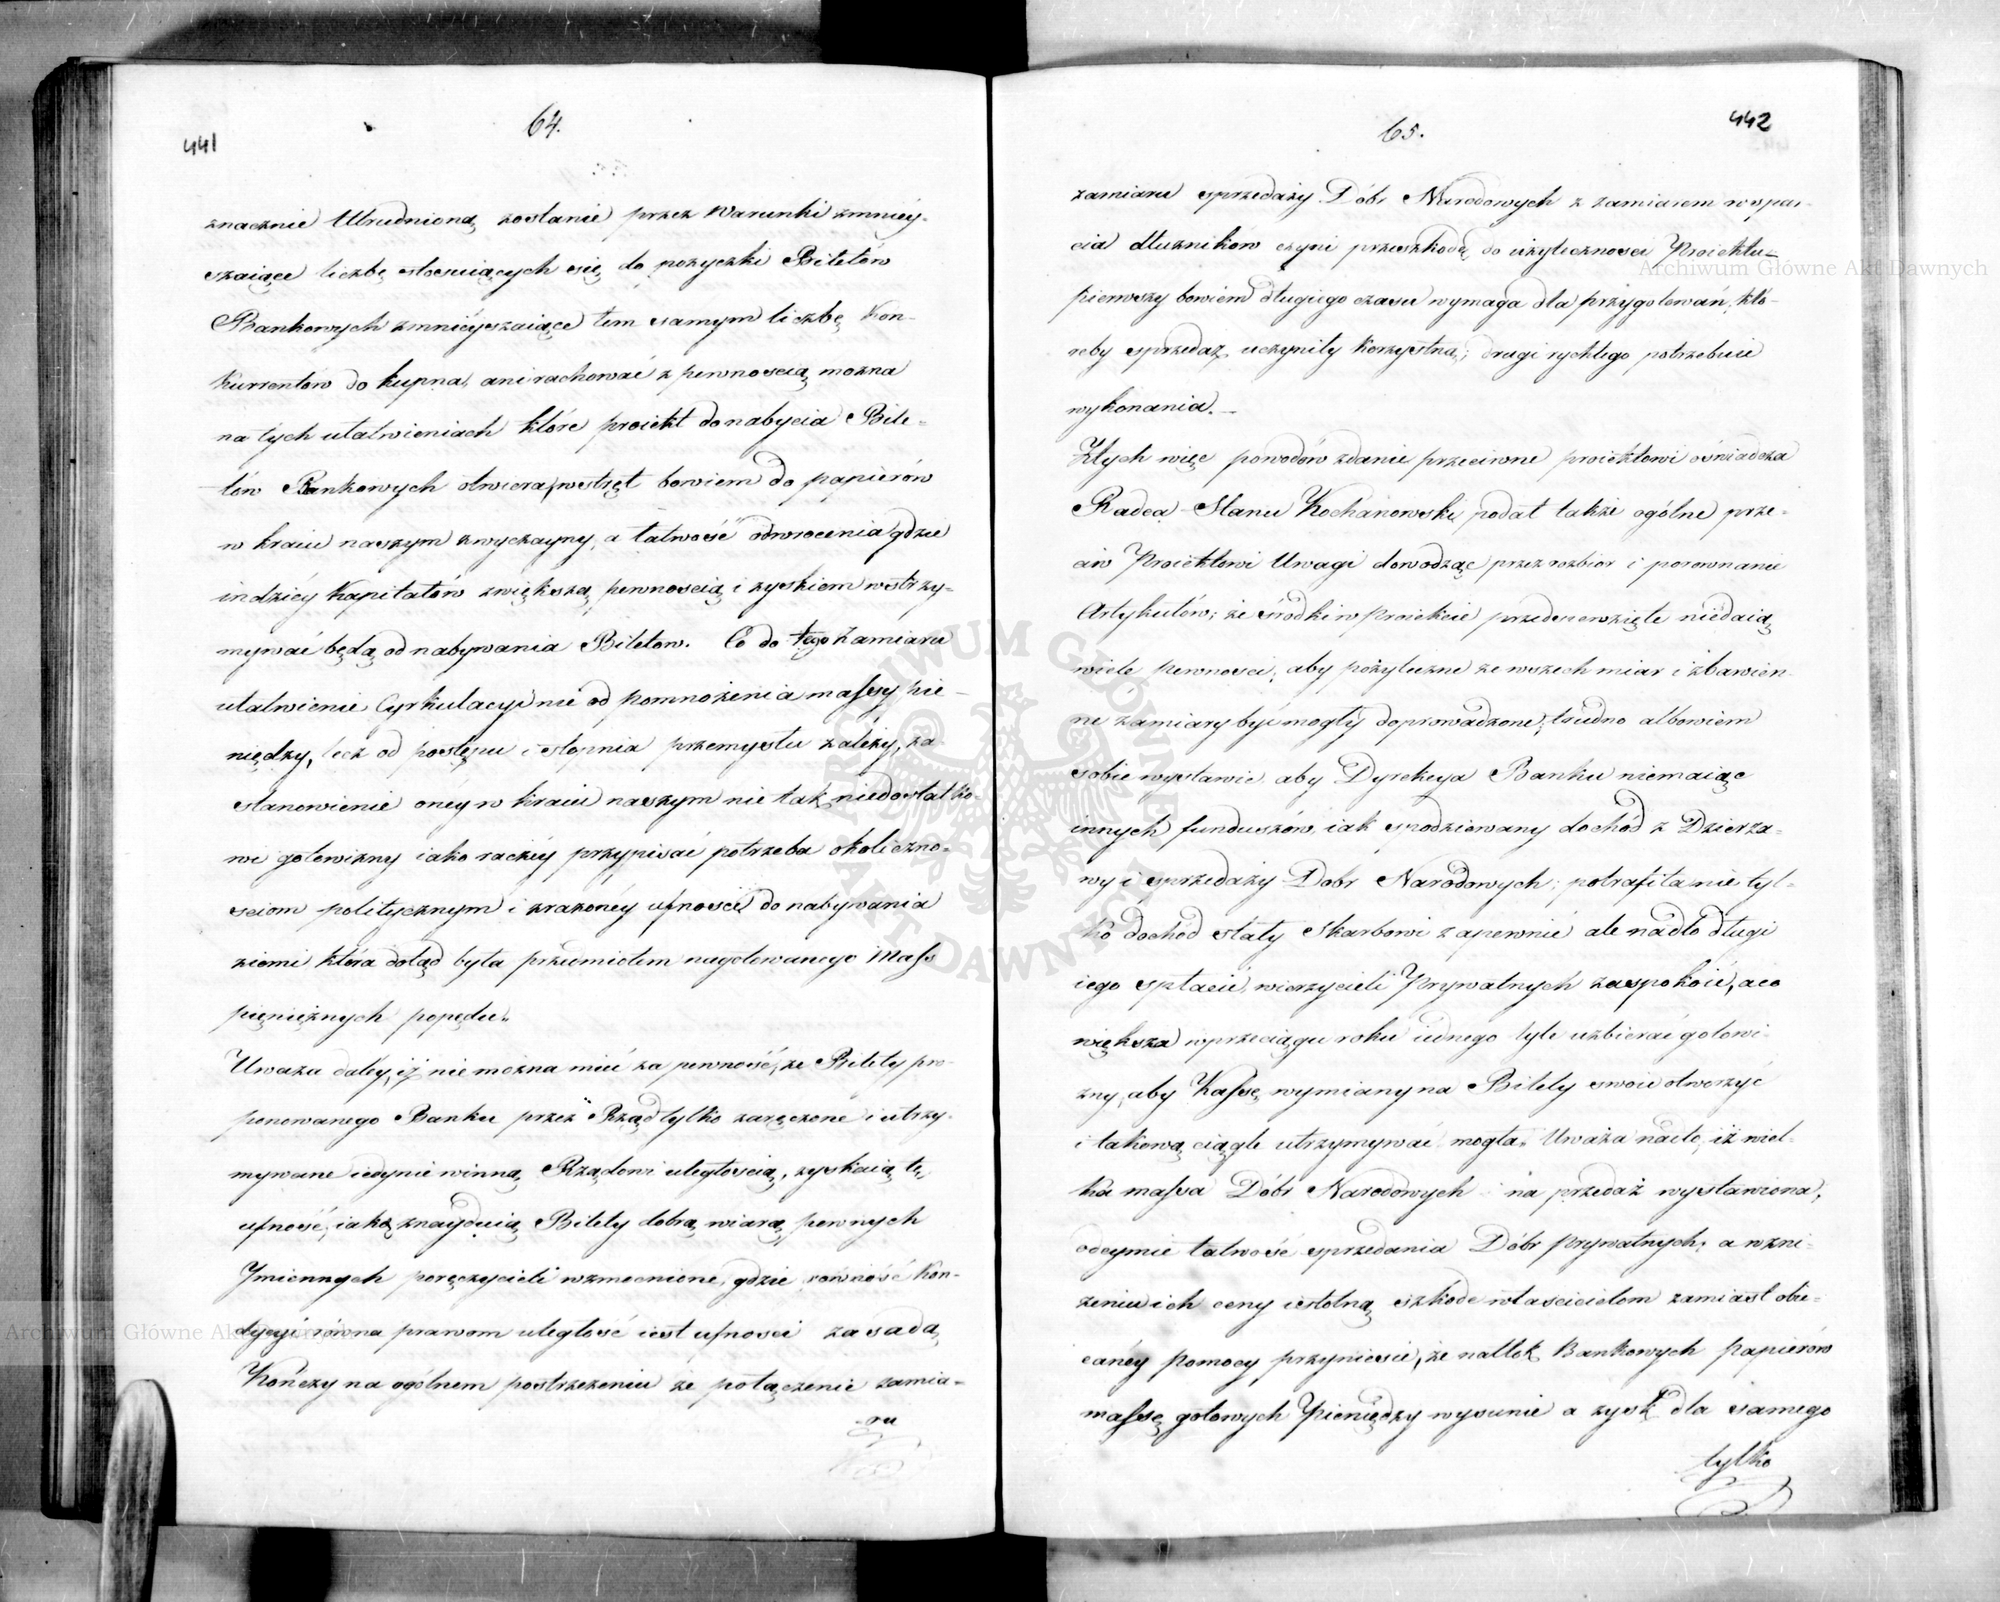 441
64.
znacznie Utrudnioną zostanie przez Warunki zmniey-
szaiące liczbę stosuiących się do pożyczki Biletów
Bankowych zmnieyszaiące tem samym liczbę Kon-
kurrentów do kupna, ani rachować z pewnością można
na tych ułatwieniach które proiekt do nabycia Bile-
tów Bankowych otwiera, wstręt bowiem do papierów
w kraiu naszym zwyczayny, a łatwość odwrócenia gdzie
indziéy Kapitałów z większą pewnością i zyskiem wstrzy-
mywać będą od nabywania Biletow. Co do tego Zamiaru
ułatwienie Cyrkulacyi nie od pomnożenia massy pie-
niędzy, lecz od postępu i stopnia przemysłu zależy, za-
stanowienie oney w kraiu naszym nie tak niedostatko-
wi gotowizny iako raczéy przypisać potrzeba okoliczno-
sciom politycznym i zrażonéy ufności do nabywania
ziemi która dotąd była przedmiotem nagotowanego Mass
pieniężnych popędu.
Uważa daley, iż nie można mieć za pewność, że Bilety pro-
ponowanego Banku przez Rząd tylko zaręczone i utrzy-
mywane iedynie winną Rządowi uległoscią, zyskaią tę
ufność, iaką znayduią Bilety dobrą wiarą pewnych
Imiennych poręczycieli wzmocnione, gdzie rowność Kon-
dycyi równa prawom uległość iest ufnosci zasadą,
Kończy na ogólnem postrzeżeniu że połączenie zamia-
ru
442
65.
zamiaru sprzedaży Dóbr Narodowych z zamiarem wspar-
cia dłużników czyni przeszkodę do użyteczności Proiektu
pierwszy bowiem długiego czasu wymaga dla przygotowań, któ-
reby sprzedaż uczyniły korzystną; drugi rychłego potrzebuie
wykonania.
Z tych więc powodów zdanie przeciwne proiektowi oświadcza
Radca Stanu Kochanowski, podał także ogólne prze-
ciw Proiektowi Uwagi dowodząc przez rozbior i porownanie
Artykułów; że środki w Proiekcie przedsięwzięte niedaią
wiele pewnosci, aby pożyteczne ze wszech miar i zbawien-
ne zamiary być mogły doprowadzone; trudno albowiem
sobie wystawić aby Dyrekcya Banku niemaiąc
innych funduszów, iak spodziewany dochód z Dzierża-
wy i sprzedaży Dobr Narodowych; potrafiła nie tyl-
ko dochód stały Skarbowi zapewnić ale nadto długi
iego spłacić, wierzycieli Prywatnych zaspokoić, a co
większa w przeciągu roku iednego tyle uzbierać gotowi-
zny, aby Kassę wymiany na Bilety swoie otworzyć
i takową ciągle utrzymywać mogła. Uważa nadto, iż wiel-
ka massa Dóbr Narodowych na przedaż wystawiona,
odeymie łatwość sprzedania Dóbr prywatnych, a w zni-
żeniu ich ceny istotną szkodę właścicielom zamiast obie-
canéy pomocy przyniesie, że natłok Bankowych papierów
massę gotowych Pieniędzy wysunie a zysk dla samego
tylko
Archiwum Główne Akt Dawnych
Archiwum Główne Akt Dawnych
ARCHIWUM GŁÓWNE AKT DAWNYCH